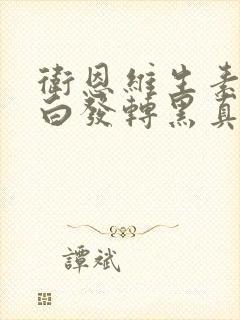 衛恩維生素
白發轉黑真
譚斌